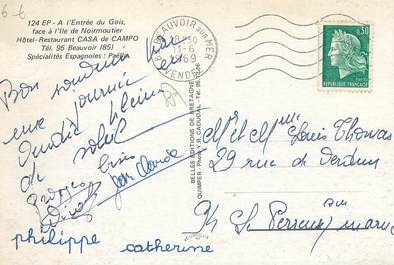 6-6
124 EP - A l'Entrée du Gois,
face à l'Ile de Noirmoutier
Hôtel-Restaurant CASA de CAMPO
Tél. 95 Beauvoir (85)
Spécialités Espagnoles : Paëlla
Bon
une journée
de soleil
Grosses bises
Jean Claude
philippe catherine
BELLES EDITIONS DE BRETAGNE
QUIMPER - Photo Y. R. CAOUDAL - Tél. 95
BEAUVOIR SUR MER
11-6
1969
VENDEE
0,30
REPUBLIQUE FRANÇAISE
M et Mme Louis Thomas
29 rue de Verdun
94 Le Perreux sur marne